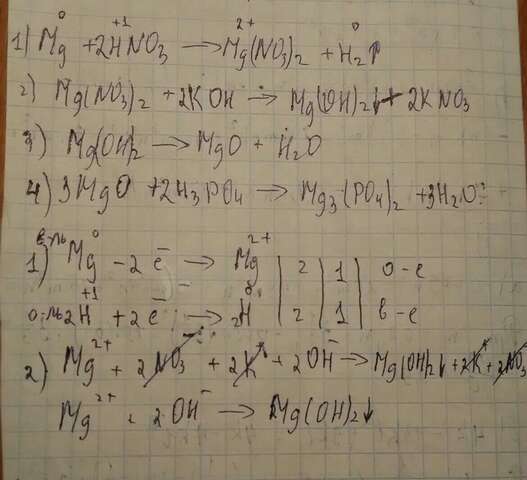 1) Mg⁰ + 2H⁺¹NO₃ → Mg²⁺(NO₃)₂ + H₂⁰↑
2) Mg(NO₃)₂ + 2KOH → Mg(OH)₂↓ + 2KNO₃
3) Mg(OH)₂ → MgO + H₂O
4) 3MgO + 2H₃PO₄ → Mg₃(PO₄)₂ + 3H₂O
в-ль
1) Mg⁰ - 2e⁻ → Mg²⁺ | 2 | 1 | о-е
о-ль 2H⁺¹ + 2e⁻ → 2H⁰ | 2 | 1 | в-е
2) Mg²⁺ + 2NO₃⁻ + 2K⁺ + 2OH⁻ → Mg(OH)₂↓ + 2K⁺ + 2NO₃
Mg²⁺ + 2OH⁻ → Mg(OH)₂↓